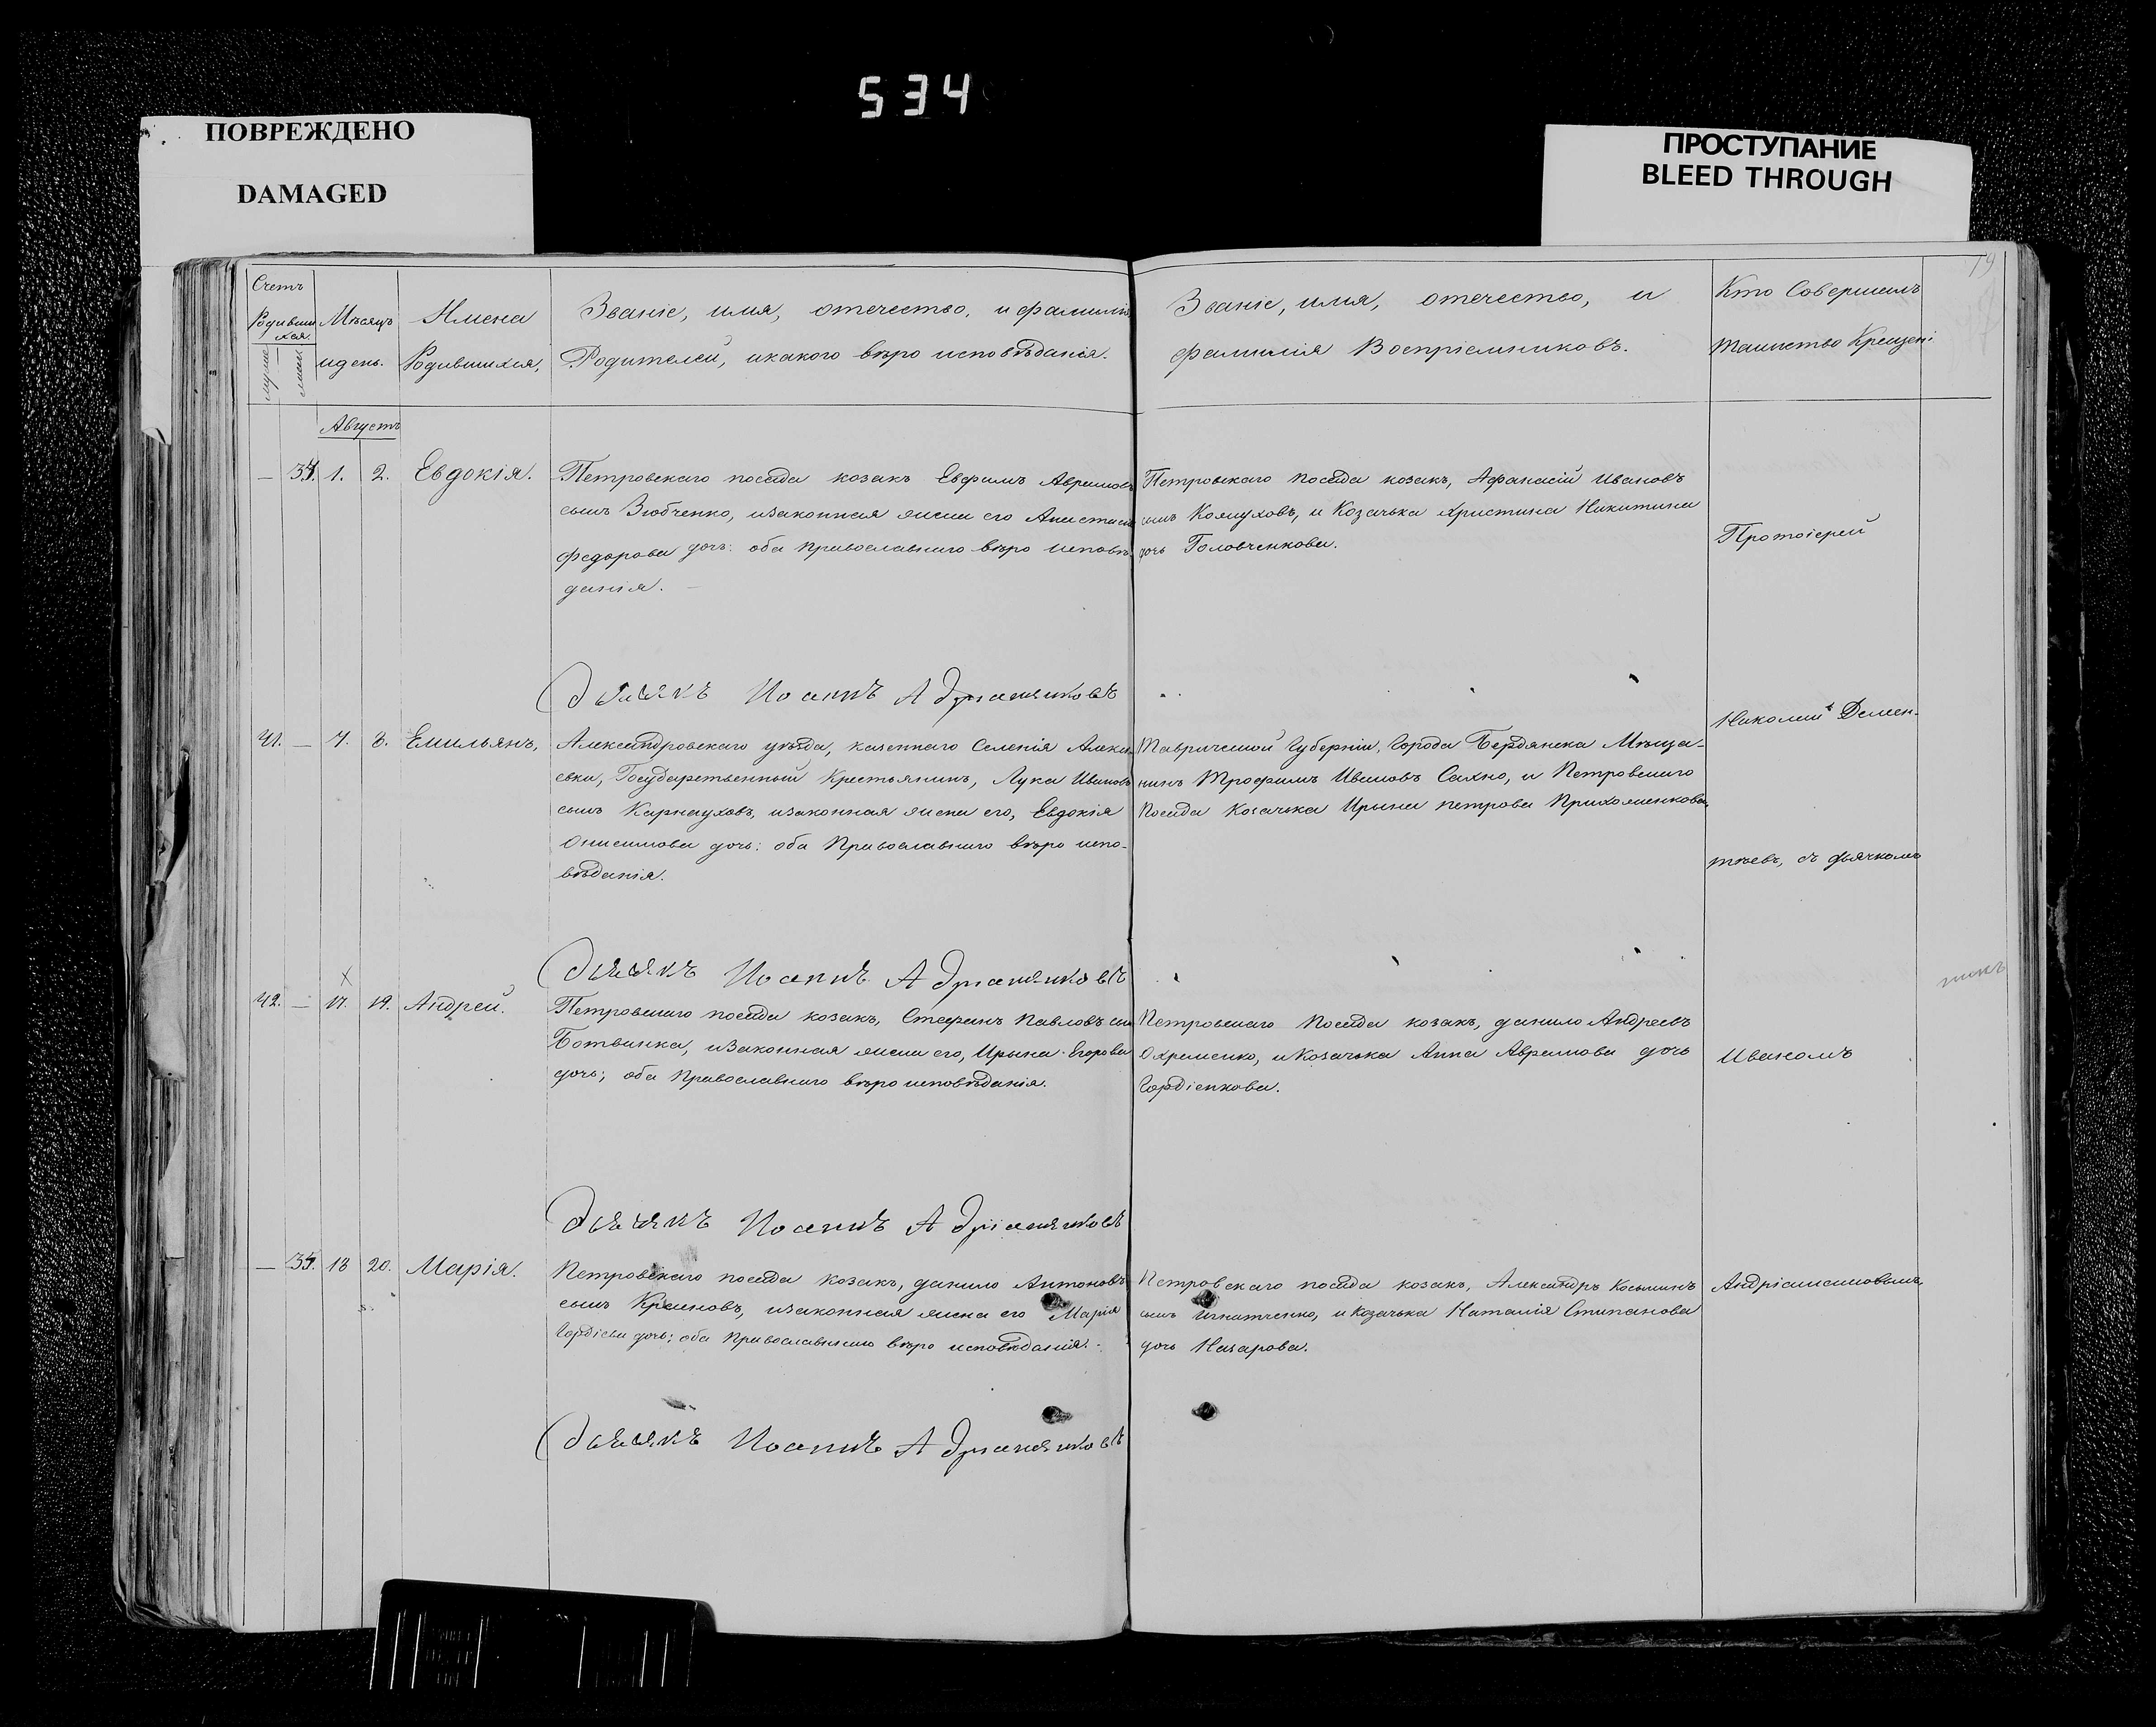 534
ПОВРЕЖДЕНО
DAMAGED
ПРОСТУПАНИЕ
BLEED THROUGH
19
Счетъ
Родивши
хся.
Мѣсяцъ
и день.
Имена
Родившихся,
Званіе, имя, отечество, и фамилія
Родителей, и какого вѣро исповѣданія.
Званіе, имя, отечество, и
фамилія Воспріемниковъ.
Кто Совершалъ
таинство Крещені
Августъ
1. 2. Евдокія.
Петровскаго посада козакъ Евфимъ Аврамовъ
сынъ Зюбченко, и законная жена его Анастасія
Федорова дочь: оба православнаго вѣро исповѣ
данія.
Петровскаго посада козакъ, Афанасій Ивановъ
сынъ Кожуховъ, и Козачька Христина Никитина
дочь Головченкова.
Протоіерей
Дьячекъ Иоаннъ Адріаняковъ
41. — 7. 8. Емильянъ,
Александровскаго уѣзда, казеннаго Селенія Алексѣ
евки, Государственный Крестьянинъ, Лука Ивановъ
сынъ Карнауховъ, и законная жена его, Евдокія
Онисимова дочь: оба Православнаго вѣро испо-
вѣданія.
Таврической Губерніи, Города Бердянска Мѣща-
нинъ Трофимъ Ивановъ Сахно, и Петровскаго
Посада Козачька Ирына петрова
Николай Демен-
тѣевъ, съ дьячкомъ
Дьячекъ Иоаннъ Адріаняковъ
42. — 17. 19. Андрей.
Петровскаго посада козакъ, Стефанъ Павловъ сынъ
Ботвинка, и законная жена его, Ирына Егорова
дочь; оба Православнаго вѣро исповѣданія.
Петровскаго Посада козакъ, данило Андреевъ
Охременко, и Козачька Анна Аврамова дочь
Гордіенкова.
Иваномъ
Дьячекъ Иоаннъ Адріаняковъ
18 20. Марія.
Петровскаго посада козакъ, данило Антоновъ
сынъ Краиновъ, и законная жена его Марія
Гордіева дочь; оба Православнаго вѣро исповѣданія.
Петровскаго посада козакъ, Александръ Косьминъ
сынъ Игнатченко, и Козачька Наталія Стипанова
дочь Назарова.
Дьячекъ Иоаннъ Адріаняковъ